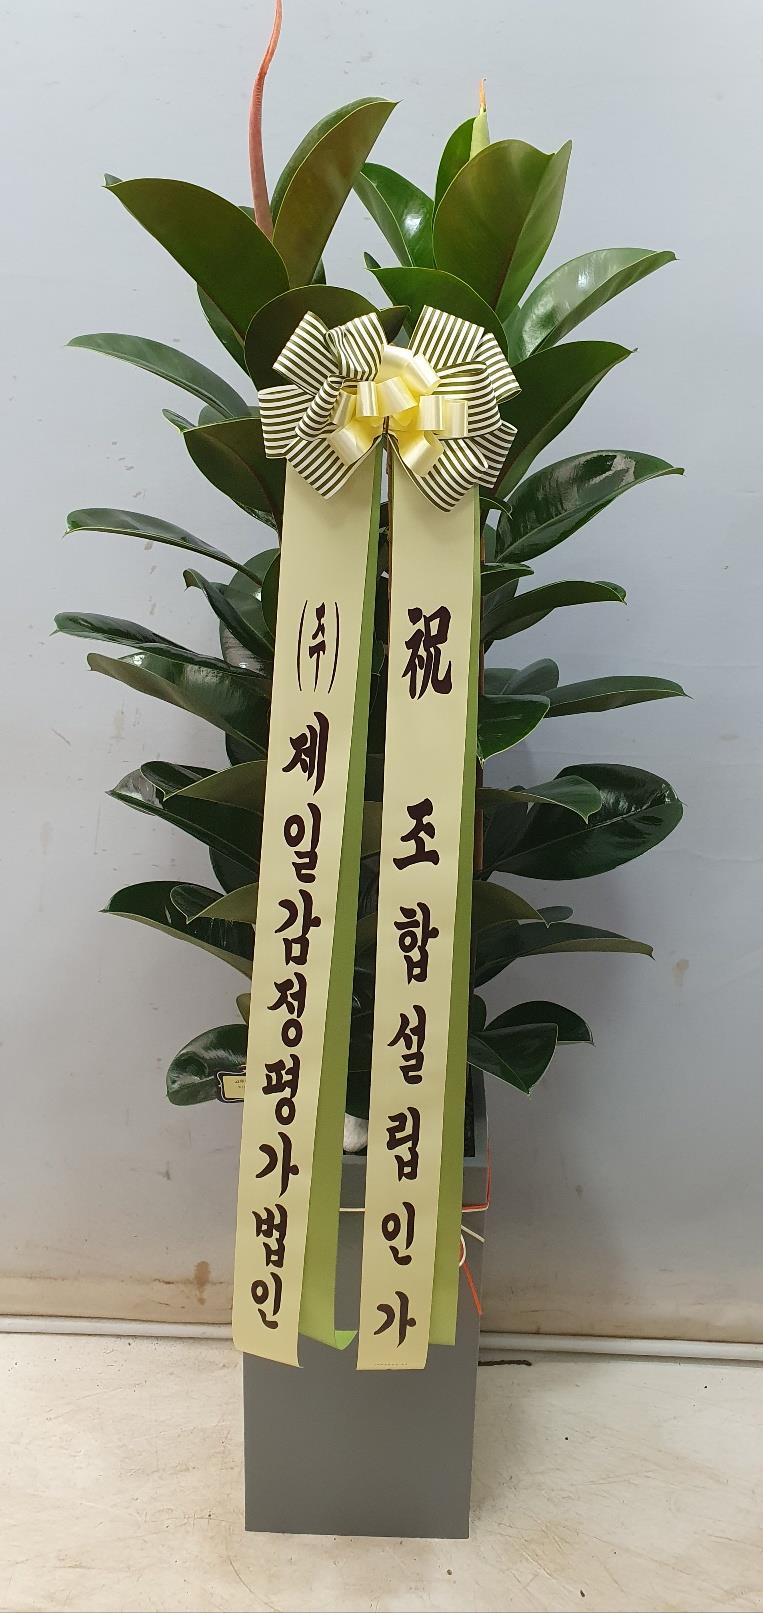 祝 조합설립인가
(주)제일감정평가법인